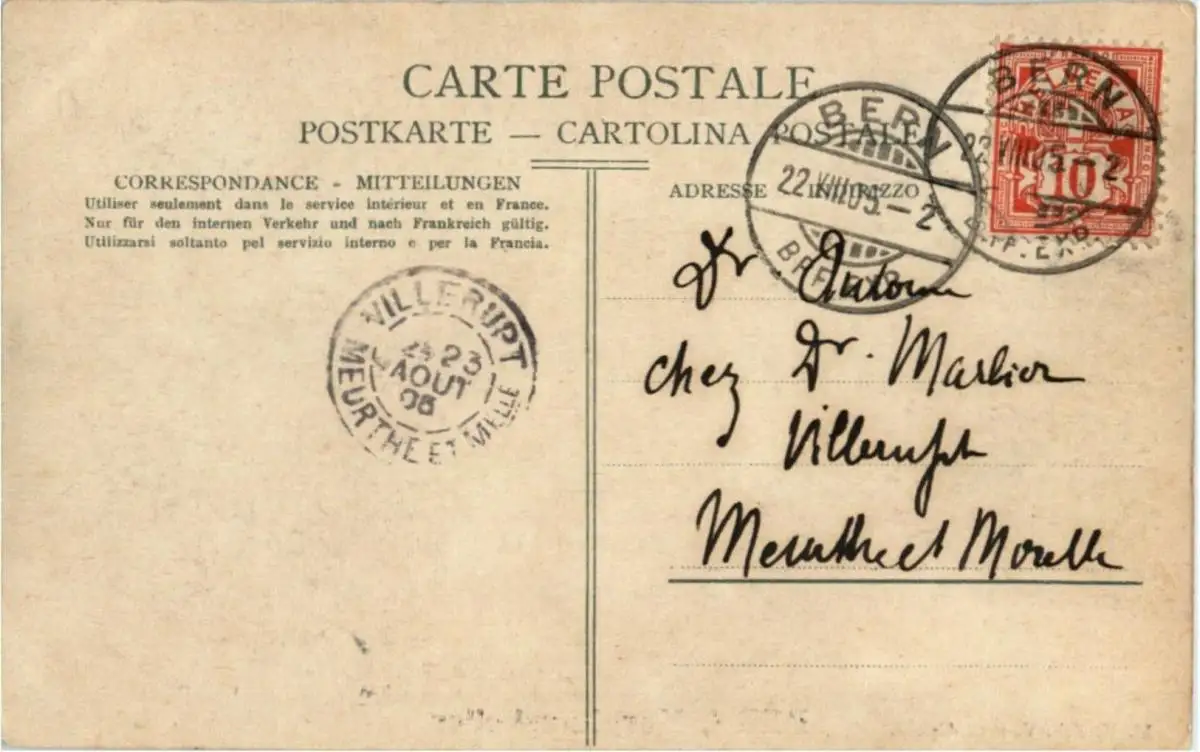 CARTE POSTALE
POSTKARTE — CARTOLINA POSTALE
CORRESPONDANCE - MITTEILUNGEN
Utiliser seulement dans le service intérieur et en France.
Nur für den internen Verkehr und nach Frankreich gültig.
Utilizzarsi soltanto pel servizio interno e per la Francia.
ADRESSE INDIRIZZO
BERN
22.VIII.05.–2
BERN
22.VIII.05.–2
10
VILLERUPT
23
AOUT
05
MEURTHE ET MELLE
Dr.
chez Dr. Marlier
Villerupt
Meurthe et Moselle